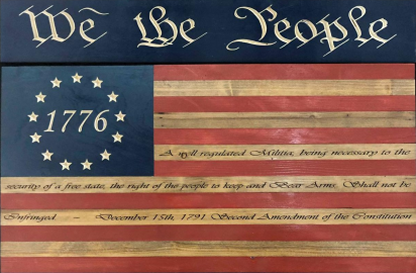 We the People
1776
A well regulated Militia, being necessary to the
security of a free state, the right of the people to keep and Bear Arms, Shall not be
Infringed - December 15th, 1791 Second Amendment of the Constitution